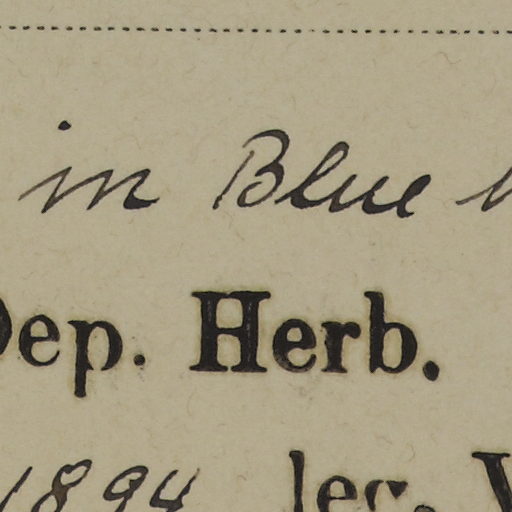 in Blue
Dep. Herb.
1894 leg.